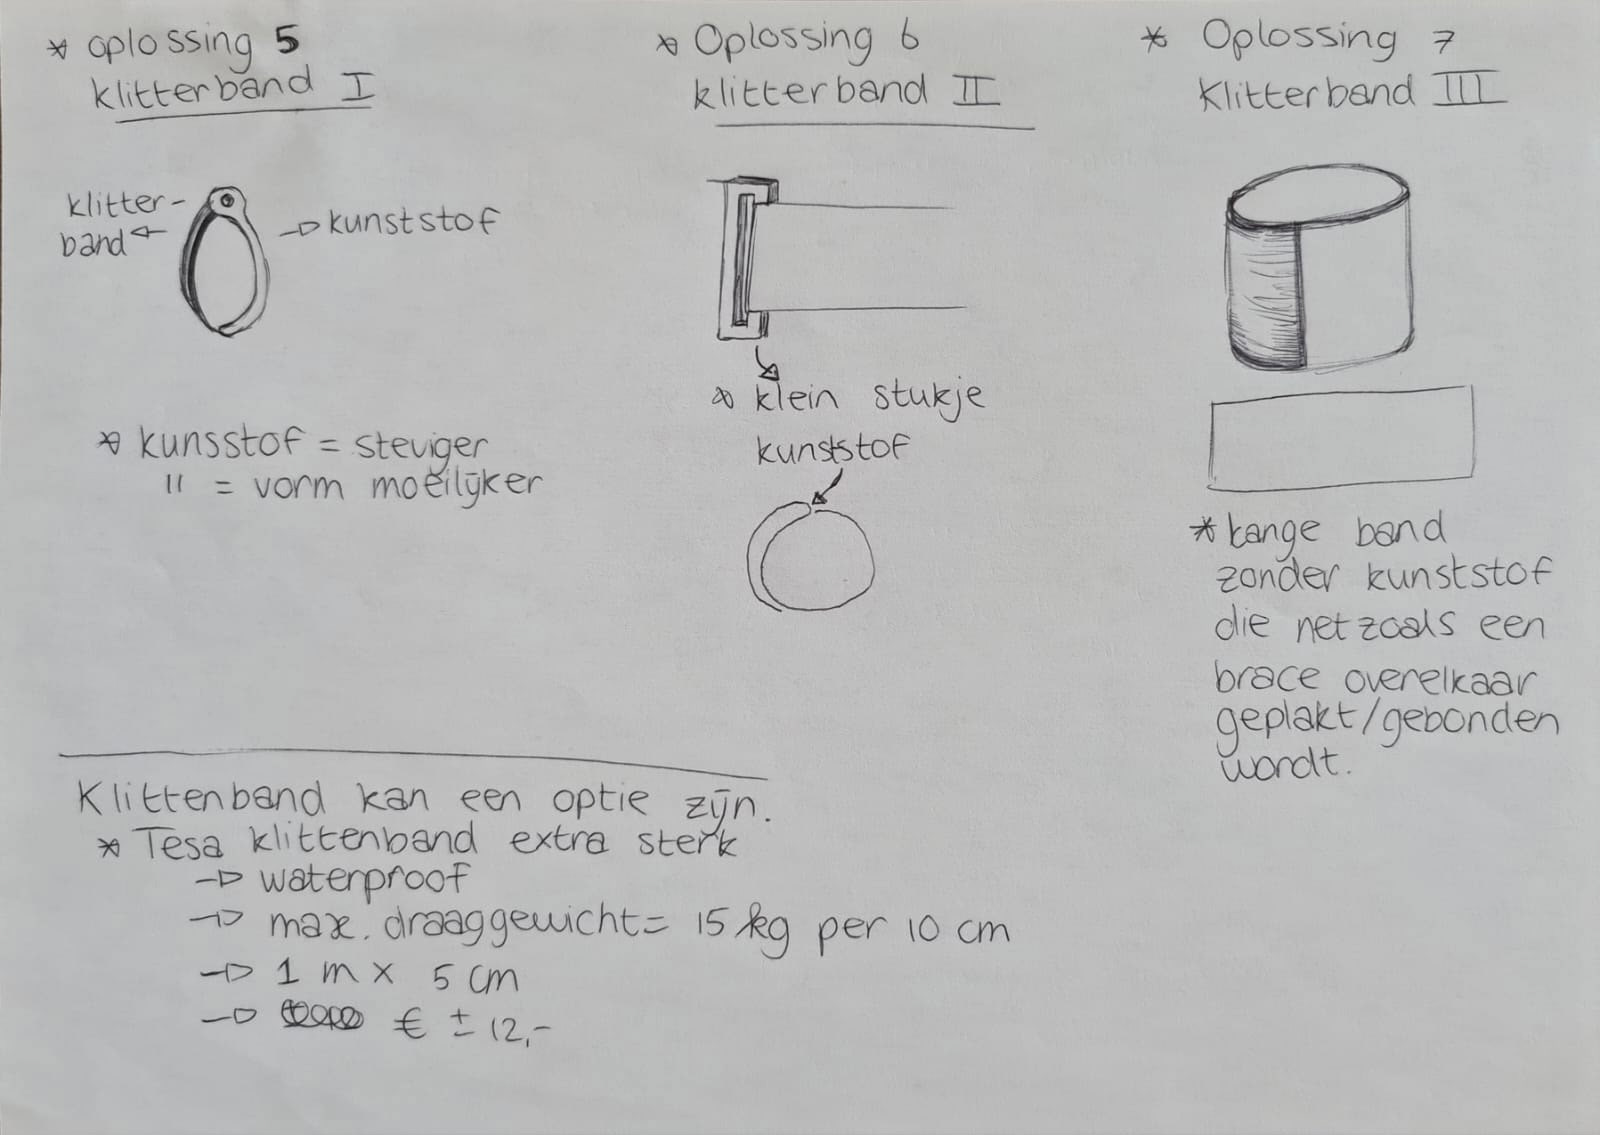 * oplossing 5
klitterband I
klitter-
band
kunststof
* kunsstof = steviger
" = vorm moeilijker
* Oplossing 6
klitterband II
* klein stukje
kunststof
* Oplossing 7
Klitterband III
* Lange band
zonder kunststof
die net zoals een
brace overelkaar
geplakt/gebonden
wordt.
Klittenband kan een optie zijn.
* Tesa klittenband extra sterk
→ waterproof
→ max. draaggewicht = 15 kg per 10 cm
→ 1 m x 5 cm
→ € ± 12,-